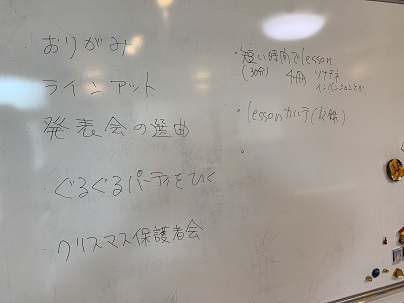 ・おりがみ
・ラインアット
・発表会の選曲
・ぐるぐるパーティをひく
・クリスマス保護者会
・短い時間でlesson
(30分) 4才 ソナチネ
インベンションとか
・lessonカルテ(記録)